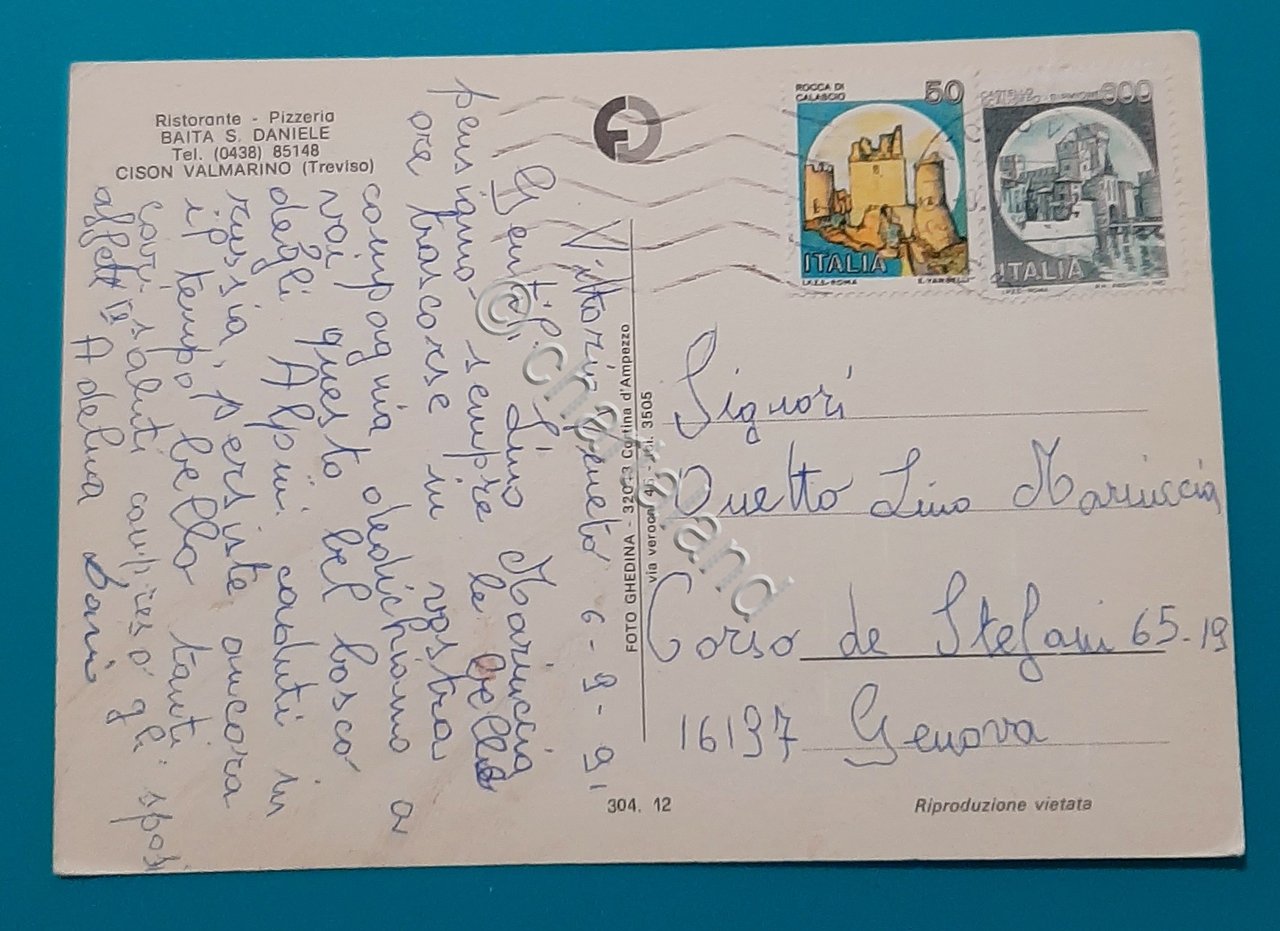 Ristorante - Pizzeria
BAITA S. DANIELE
Tel. (0438) 85148
CISON VALMARINO (Treviso)
ROCCA DI
CALASCIO
50
ITALIA
I.P.Z.S.-ROMA
CASTELLO
600
ITALIA
I.P.Z.S.-ROMA
Vittorio Veneto 6-9-91
Gentili Lino Mariuccia
pensiamo sempre le belle
ore trascorse in vostra
compagnia dedichiamo a
voi questo bel bosco
degli Alpini caduti in
russia, persiste ancora
il tempo bello tanti
cari saluti compreso gli sposi
affett Adelina
FOTO GHEDINA - 32043 Cortina d'Ampezzo
via verocai 45 - tel. 3505
Signori
Lino Mariuccia
Corso de Stefani 65-19
16137 Genova
304. 12
Riproduzione vietata
© chartaland